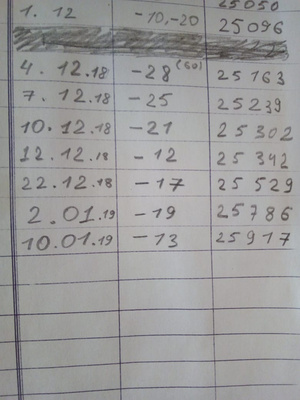 25050
1. 12 -10,-20 25096
4. 12.18 -28 (60) 25163
7. 12.18 -25 25239
10.12.18 -21 25302
12.12.18 -12 25342
22.12.18 -17 25529
2.01.19 -19 25786
10.01.19 -13 25917